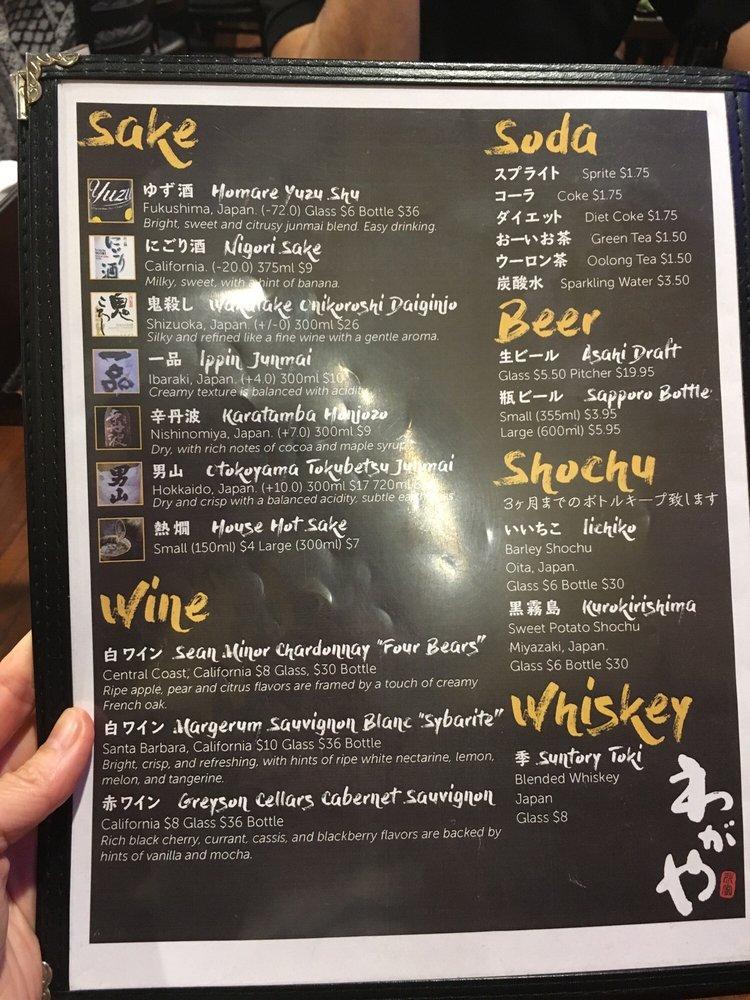 Sake
Yuzu
ゆず酒 Homare Yuzu Shu
Fukushima, Japan. (-72.0) Glass $6 Bottle $36
Bright, sweet and citrusy junmai blend. Easy drinking.
にごり酒
にごり酒 Nigori Sake
California. (-20.0) 375ml $9
Milky, sweet, with a hint of banana.
鬼ころし
鬼殺し Wakatake Onikoroshi Daiginjo
Shizuoka, Japan. (+/-0) 300ml $26
Silky and refined like a fine wine with a gentle aroma.
一品
一品 Ippin Junmai
Ibaraki, Japan. (+4.0) 300ml $10
Creamy texture is balanced with acidity.
辛丹波
辛丹波 Karatamba Honjozo
Nishinomiya, Japan. (+7.0) 300ml $9
Dry, with rich notes of cocoa and maple syrup.
男山
男山 Otokoyama Tokubetsu Junmai
Hokkaido, Japan. (+10.0) 300ml $17 720ml
Dry and crisp with a balanced acidity, subtle
熱燗 House Hot Sake
Small (150ml) $4 Large (300ml) $7
Wine
白ワイン Sean Minor Chardonnay "Four Bears"
Central Coast, California $8 Glass, $30 Bottle
Ripe apple, pear and citrus flavors are framed by a touch of creamy
French oak.
白ワイン Margerum Sauvignon Blanc "Sybarite"
Santa Barbara, California $10 Glass $36 Bottle
Bright, crisp, and refreshing, with hints of ripe white nectarine, lemon,
melon, and tangerine.
赤ワイン Greyson Cellars Cabernet Sauvignon
California $8 Glass $36 Bottle
Rich black cherry, currant, cassis, and blackberry flavors are backed by
hints of vanilla and mocha.
Soda
スプライト Sprite $1.75
コーラ Coke $1.75
ダイエット Diet Coke $1.75
おーいお茶 Green Tea $1.50
ウーロン茶 Oolong Tea $1.50
炭酸水 Sparkling Water $3.50
Beer
生ビール Asahi Draft
Glass $5.50 Pitcher $19.95
瓶ビール Sapporo Bottle
Small (355ml) $3.95
Large (600ml) $5.95
Shochu
3ヶ月までのボトルキープ致します
いいちこ Iichiko
Barley Shochu
Oita, Japan.
Glass $6 Bottle $30
黒霧島 Kurokirishima
Sweet Potato Shochu
Miyazaki, Japan.
Glass $6 Bottle $30
Whiskey
季 Suntory Toki
Blended Whiskey
Japan
Glass $8
わがや